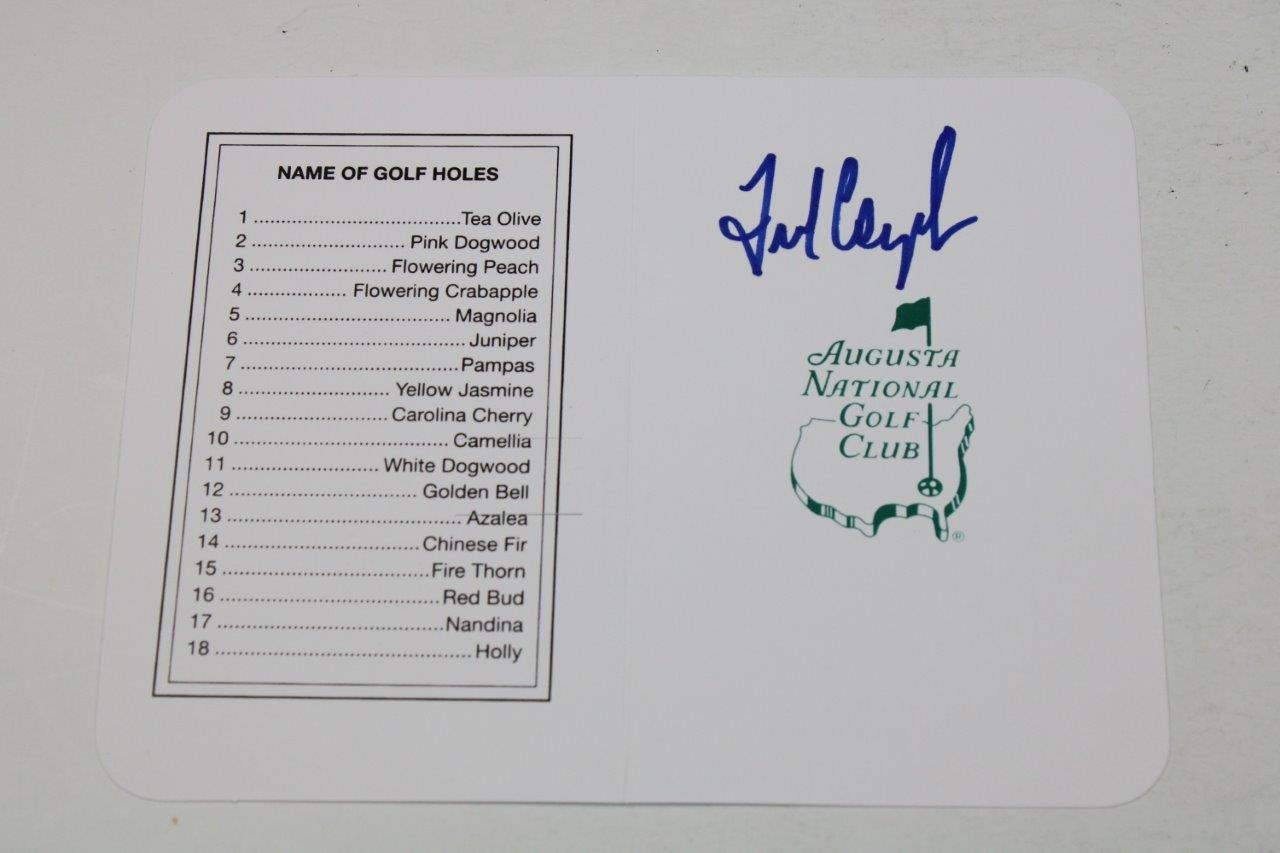 NAME OF GOLF HOLES
1 ..................................Tea Olive
2 ......................... Pink Dogwood
3 ....................... Flowering Peach
4 ................. Flowering Crabapple
5 .................................. Magnolia
6 ..................................... Juniper
7 ....................................Pampas
8 ........................ Yellow Jasmine
9 ........................ Carolina Cherry
10 .................................... Camellia
11 ........................ White Dogwood
12 ............................... Golden Bell
13 ....................................... Azalea
14 ................................Chinese Fir
15 ..................................Fire Thorn
16 .....................................Red Bud
17 ......................................Nandina
18 ........................................... Holly
AUGUSTA
NATIONAL
GOLF
CLUB
®